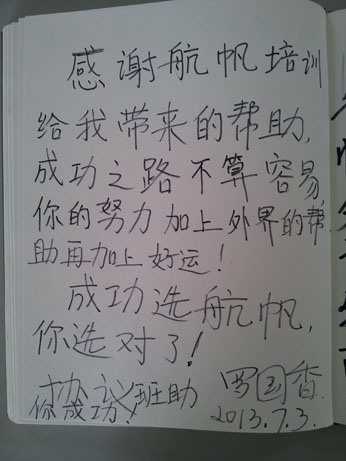 感谢航帆培训
给我带来的帮助,
成功之路不算容易,
你的努力加上外界的帮
助再加上好运!
成功选航帆,
你选对了!
协议班助 罗国香
你成功! 2013.7.3.